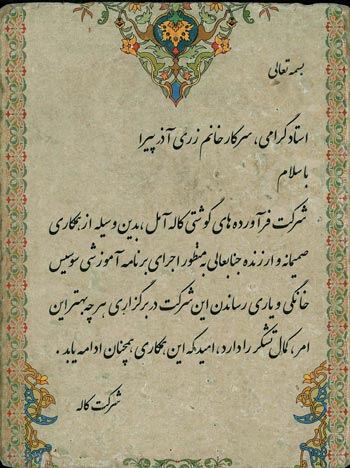 بسمه تعالی
استاد گرامی، سرکار خانم زری آذر پیرا
با سلام
شرکت فرآورده های گوشتی کاله آمل، بدین وسیله از همکاری
صمیمانه و ارزنده جنابعالی به منظور اجرای برنامه آموزشی سوسیس
خانگی و یاری رساندن این شرکت در برگزاری هر چه بهتر این
امر، کمال تشکر را دارد، امید که این همکاری همچنان ادامه یابد.
شرکت کاله